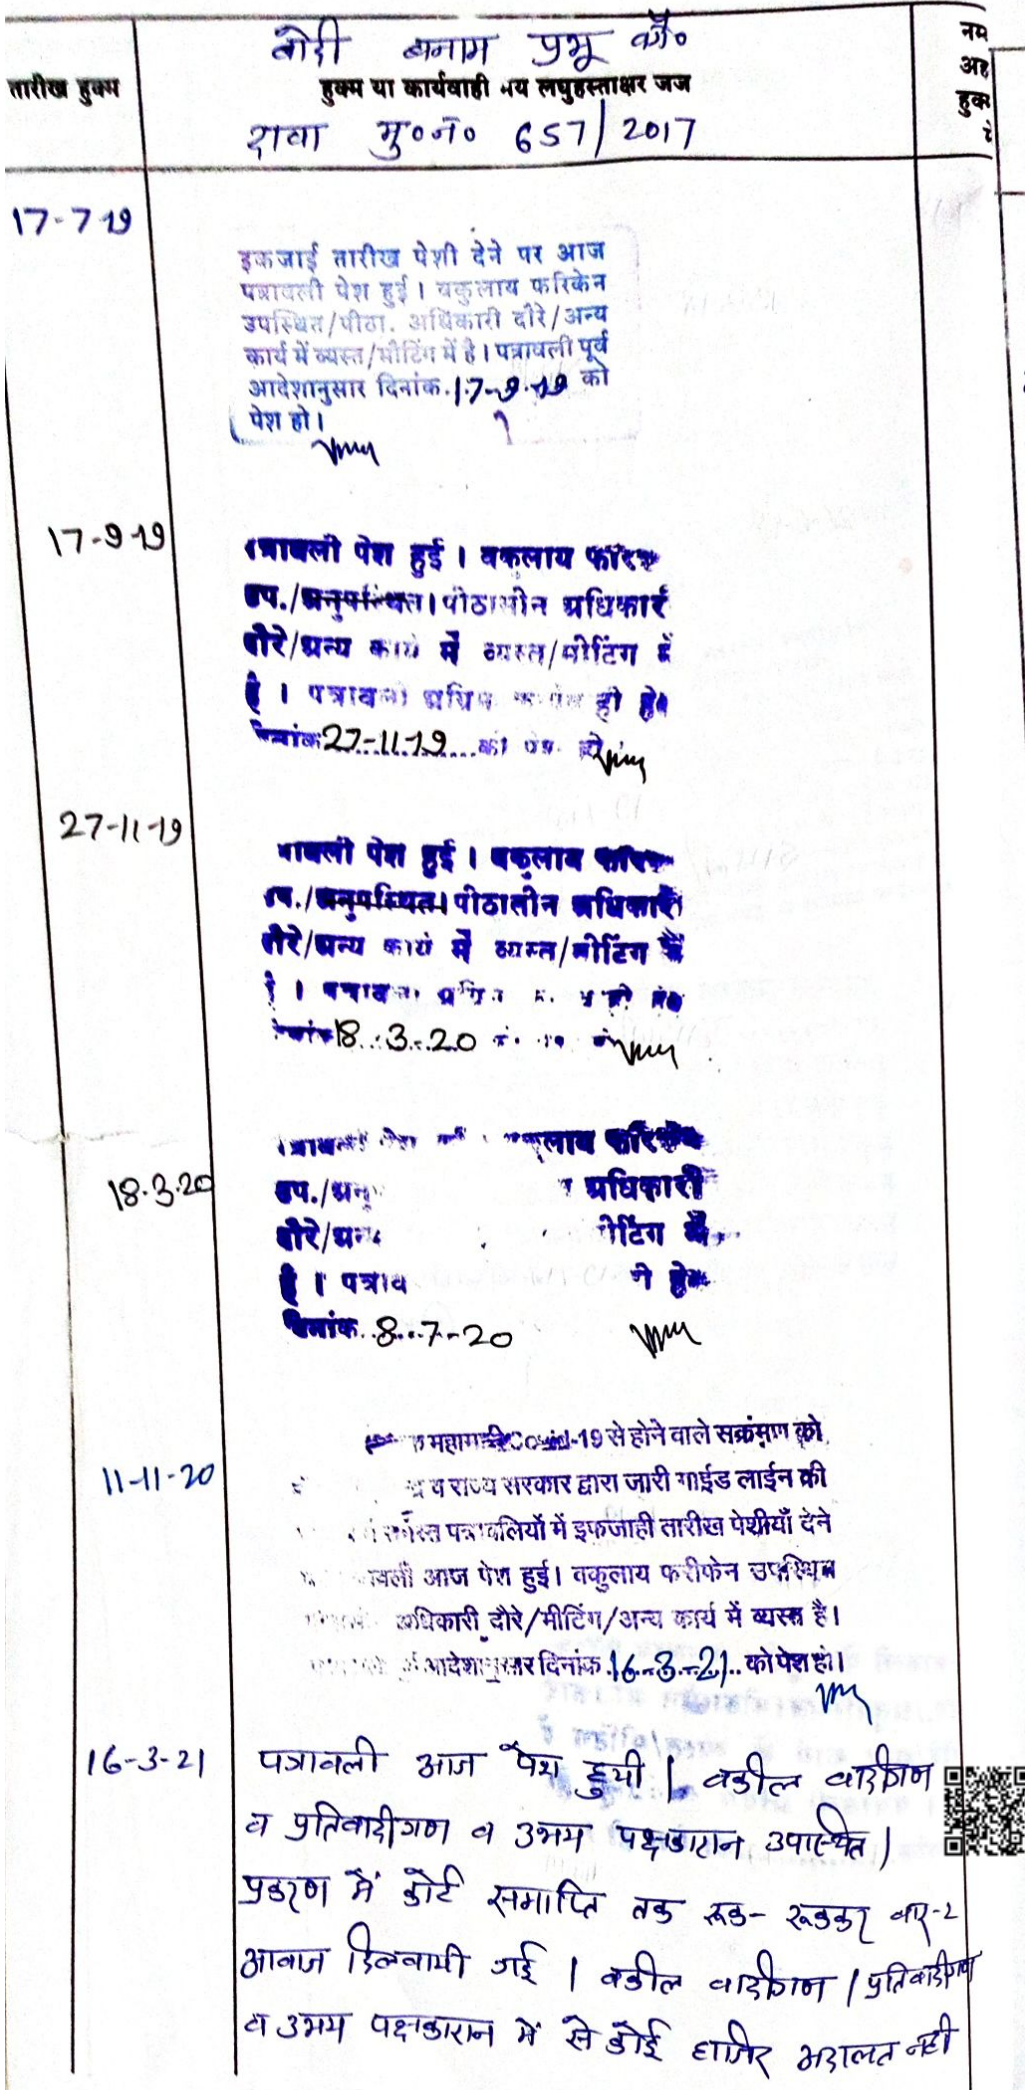 बनाम प्रभू वगै०
नम
तारीख हुक्म
हुक्म या कार्यवाही मय लघुहस्ताक्षर जज
अह
हुक्म
दावा मु०नं० 657/2017
17-7-19
इकजाई तारीख पेशी देने पर आज
पत्रावली पेश हुई। वकुलाय फरिकेन
उपस्थित/पीठा. अधिकारी दौरे/अन्य
कार्य में व्यस्त/मीटिंग में है। पत्रावली पूर्व
आदेशानुसार दिनांक.17-9-19 को
पेश हो।
17-9-19
त्रावली पेश हुई। वकलाय
उप./अनुपस्थित। पीठासीन अधिकारी
दौरे/अन्य कार्य में व्यस्त/मीटिंग में
है। पत्रावली
27-11-19
27-11-19
वली पेश हुई। वकुलाय
उप./अनुपस्थित। पीठासीन अधिकारी
दौरे/अन्य कार्य में व्यस्त/मीटिंग में
18.3.20
18.3.20
लाय
उप./अनु अधिकारी
दौरे/अन्य मीटिंग में
है। पत्राव
दिनांक.8.7-20
11-11-20
महामारी Covid-19 से होने वाले सक्रंमण को
व राज्य सरकार द्वारा जारी गाईड लाईन की
पत्रावलियों में इकजाही तारीख पेशीयाँ देने
वली आज पेश हुई। वकुलाय फरीकेन उपस्थित
अधिकारी दौरे/मीटिंग/अन्य कार्य में व्यस्त है।
आदेशानुसार दिनांक.16-3-21.. को पेश हो।
16-3-21
पत्रावली आज पेश हुयी। वकील वादीगण
व प्रतिवादीगण व उभय पक्षकारान उपस्थित।
प्रकरण में कोर्ट समाप्ति तक रूक-रूककर बार-2
आवाज दिलवायी गई। वकील वादीगण/प्रतिवादीगण
व उभय पक्षकारान में से कोई हाजिर अदालत नही